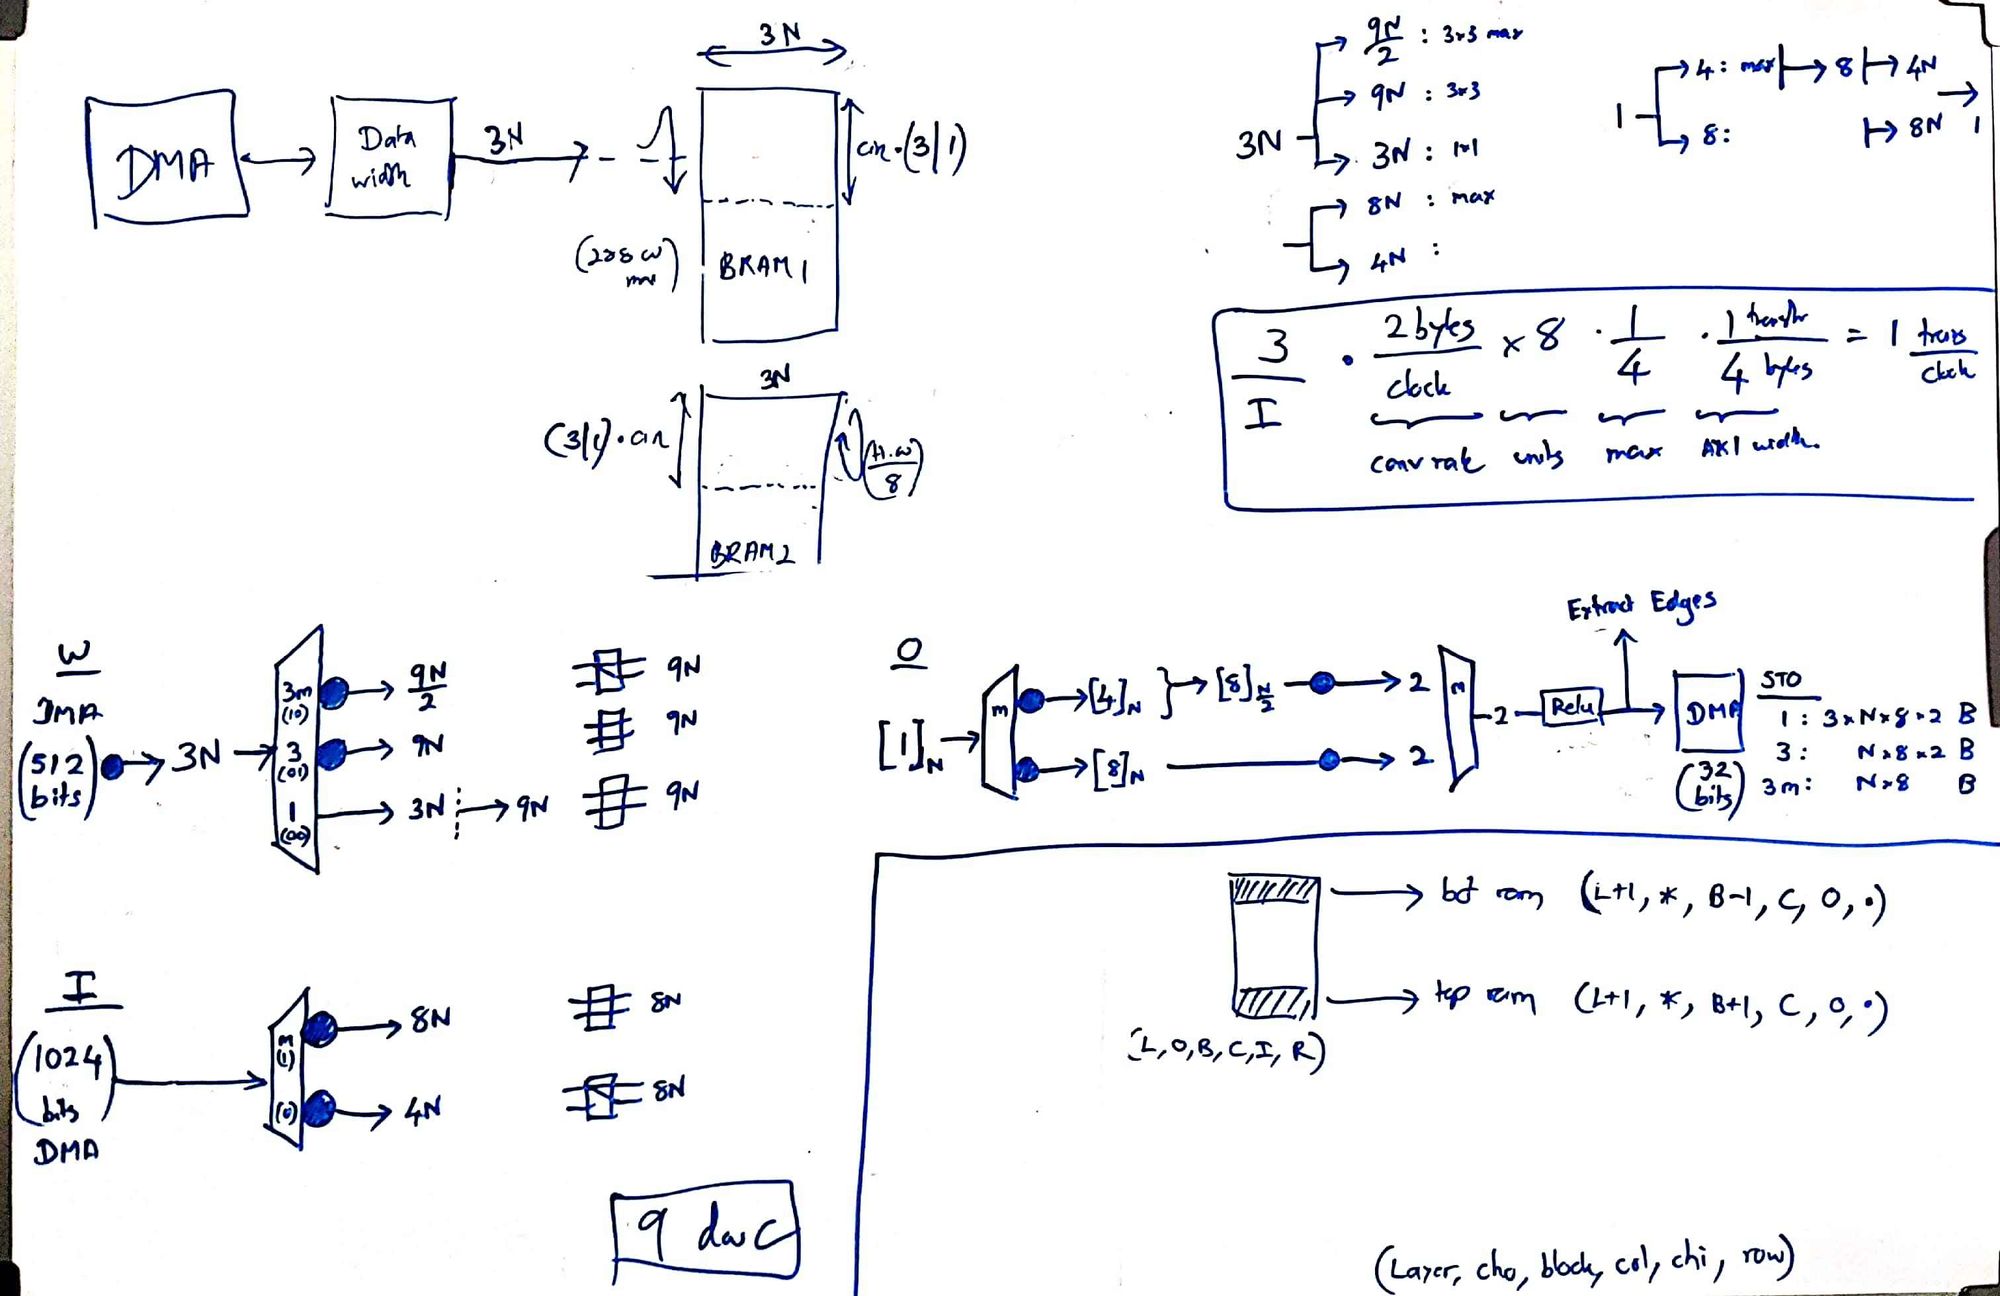 3N
DMA
Data
width
3N
cin·(3|1)
BRAM 1
3N
(3|1)·cin
H.W
8
BRAM 2
3N
9N
2
: 3x3 max
9N : 3x3
3N : 1x1
8N : max
4N :
1
4: max
8
4N
8:
8N
1
3
I
·
2 bytes
clock
× 8 ·
1
4
·
1 transfer
4 bytes
= 1
trans
clock
conv rate
units
max
AXI width.
W
DMA
(512
bits)
3N
3m
(10)
3
(01)
1
(00)
9N
2
9N
3N
9N
9N
9N
9N
I
(1024
bits
DMA
m
(1)
(0)
8N
4N
8N
8N
9 dwc
O
[1]N
m
[4]N
[8]N/2
2
[8]N
2
m
2
Relu
Extract Edges
DMA
(32
bits)
STO
1 : 3×N×8×2 B
3 : N×8×2 B
3m : N×8 B
bot ram (L+1, *, B-1, C, 0, ·)
top ram (L+1, *, B+1, C, 0, ·)
(L, O, B, C, I, R)
(Layer, cho, block, col, chi, row)